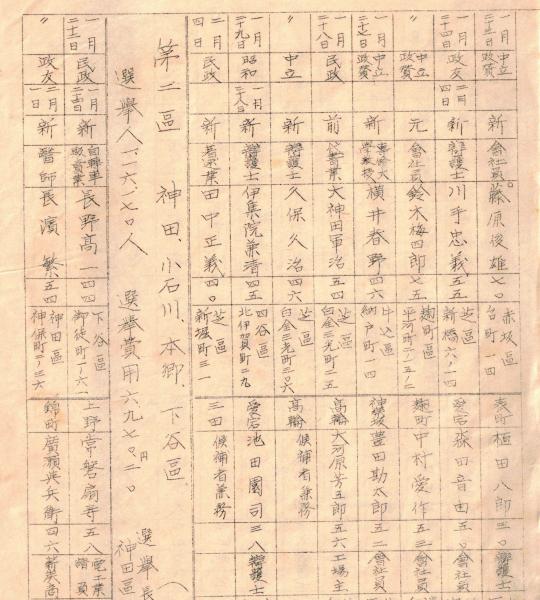 一月二十二日 中立政賛 新 會社員 藤原俊雄 七〇 赤坂區台町一四 表町 植田八郎 三〇 辯護士
一月二十四日 政友 二月四日 新 辯護士 川手忠義 五五 芝區新橋六ノ一四 愛宕 森田音由 五〇 會社員
〃 中立政賛 元 會社員 鈴木梅四郎 七五 麹町區平河町二ノ五ノ二 麹町 中村愛作 五三 會社員
一月二十七日 中立政賛 新 専修大学教授 横井春野 四六 牛込區納戸町一四 神樂坂 豊田勘太郎 五二 會社員
一月二十八日 民政 前 著業 大神田軍治 五四 芝區白金三光町二五 高輪 大河原芳五郎 五六 工場主
〃 中立 新 辯護士 久保久治 四六 芝區白金三光町二〇六 高輪 候補者兼務
一月二十九日 昭和 一月二十八日 新 辯護士 伊集院兼清 四五 四谷區北伊賀町二九 愛宕 池田園司 三八 辯護士
二月四日 民政 新 著業 田中正義 四〇 芝區新堀町三一 三田 候補者兼務
第二區 神田、小石川、本郷、下谷區
選擧人一一六一八七〇人 選擧費用六九七〇円二〇 選擧長 神田區
一月二十二日 民政 一月二十四日 新 自轉車販賣業 長野高一 四四 下谷區御徒町二ノ六一 上野 常磐扇寿 五八 電工業
〃 政友 二月一日 新 醫師 長濱繁 五四 神田區神保町二ノ三六 錦町 廣瀬與兵衛 四六 薪炭商